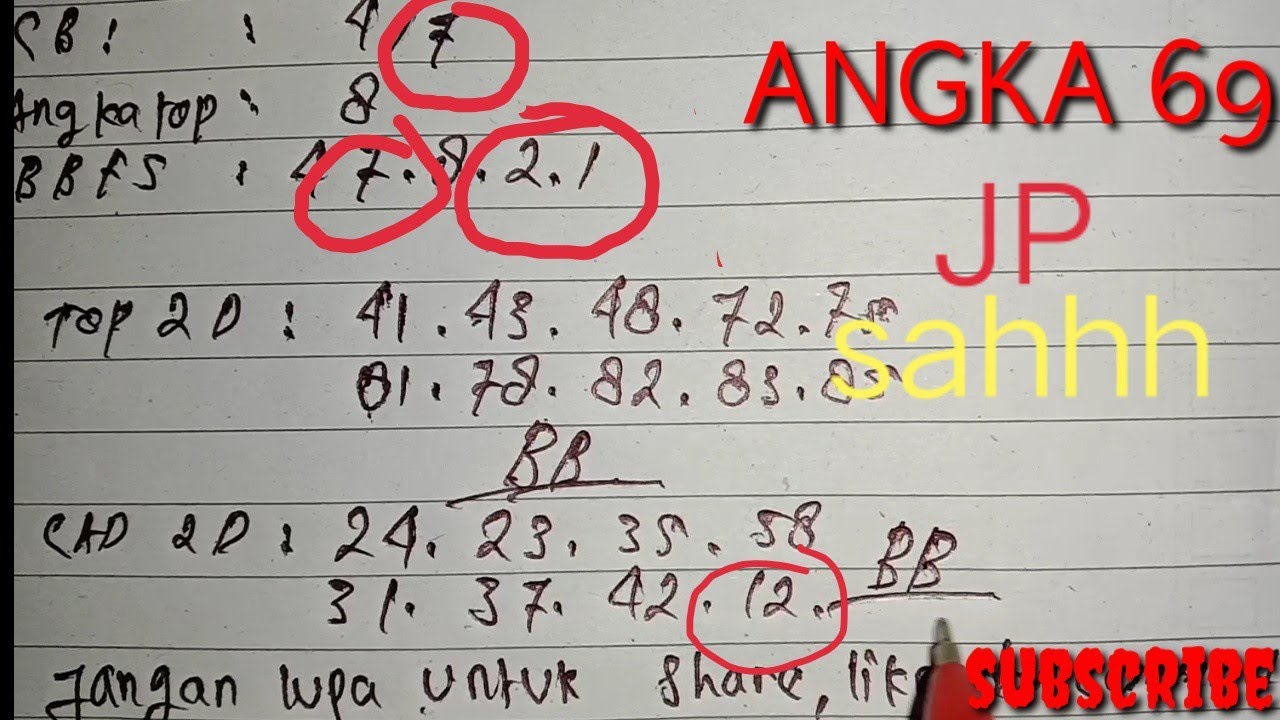 CB : : 4 / 7
Angka top : 8
BBFS : 4 7 . 8 . 2 . 1
ANGKA 69
JP
sahhh
TOP 2D : 41 . 43 . 48 . 72 .
81 . 78 . 82 . 83 .
BB
CAD 2D : 24 . 23 . 35 . 58
31 . 37 . 42 . 12 . BB
Jangan lupa untuk share, like
SUBSCRIBE